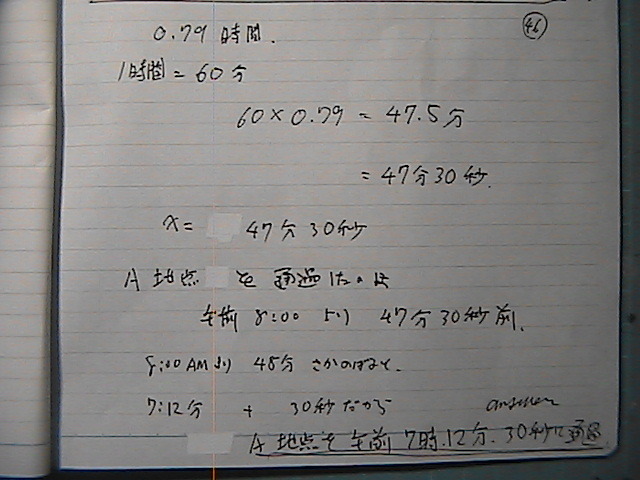 46
0.79 時間.
1時間 = 60分
60 × 0.79 = 47.5分
= 47分30秒.
x = 47分30秒
A 地点 を 通過したのは
午前 8:00 より 47分30秒前.
8:00 AMより 48分 さかのぼると.
7:12分 + 30秒だから
answer
A 地点を午前 7時.12分.30秒に通過